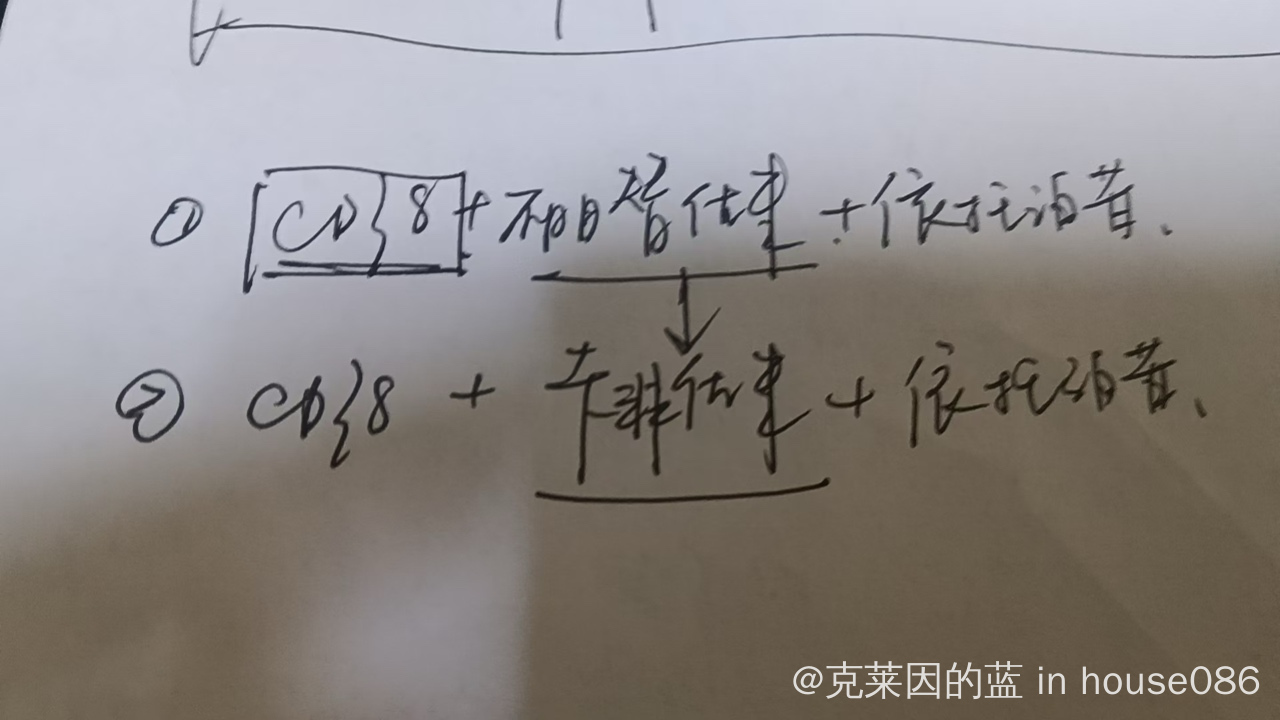 ① [CD38]+硼替佐米+依托泊苷、
↓
② CD38 + 卡非佐米 + 依托泊苷、
@克莱因的蓝 in house086